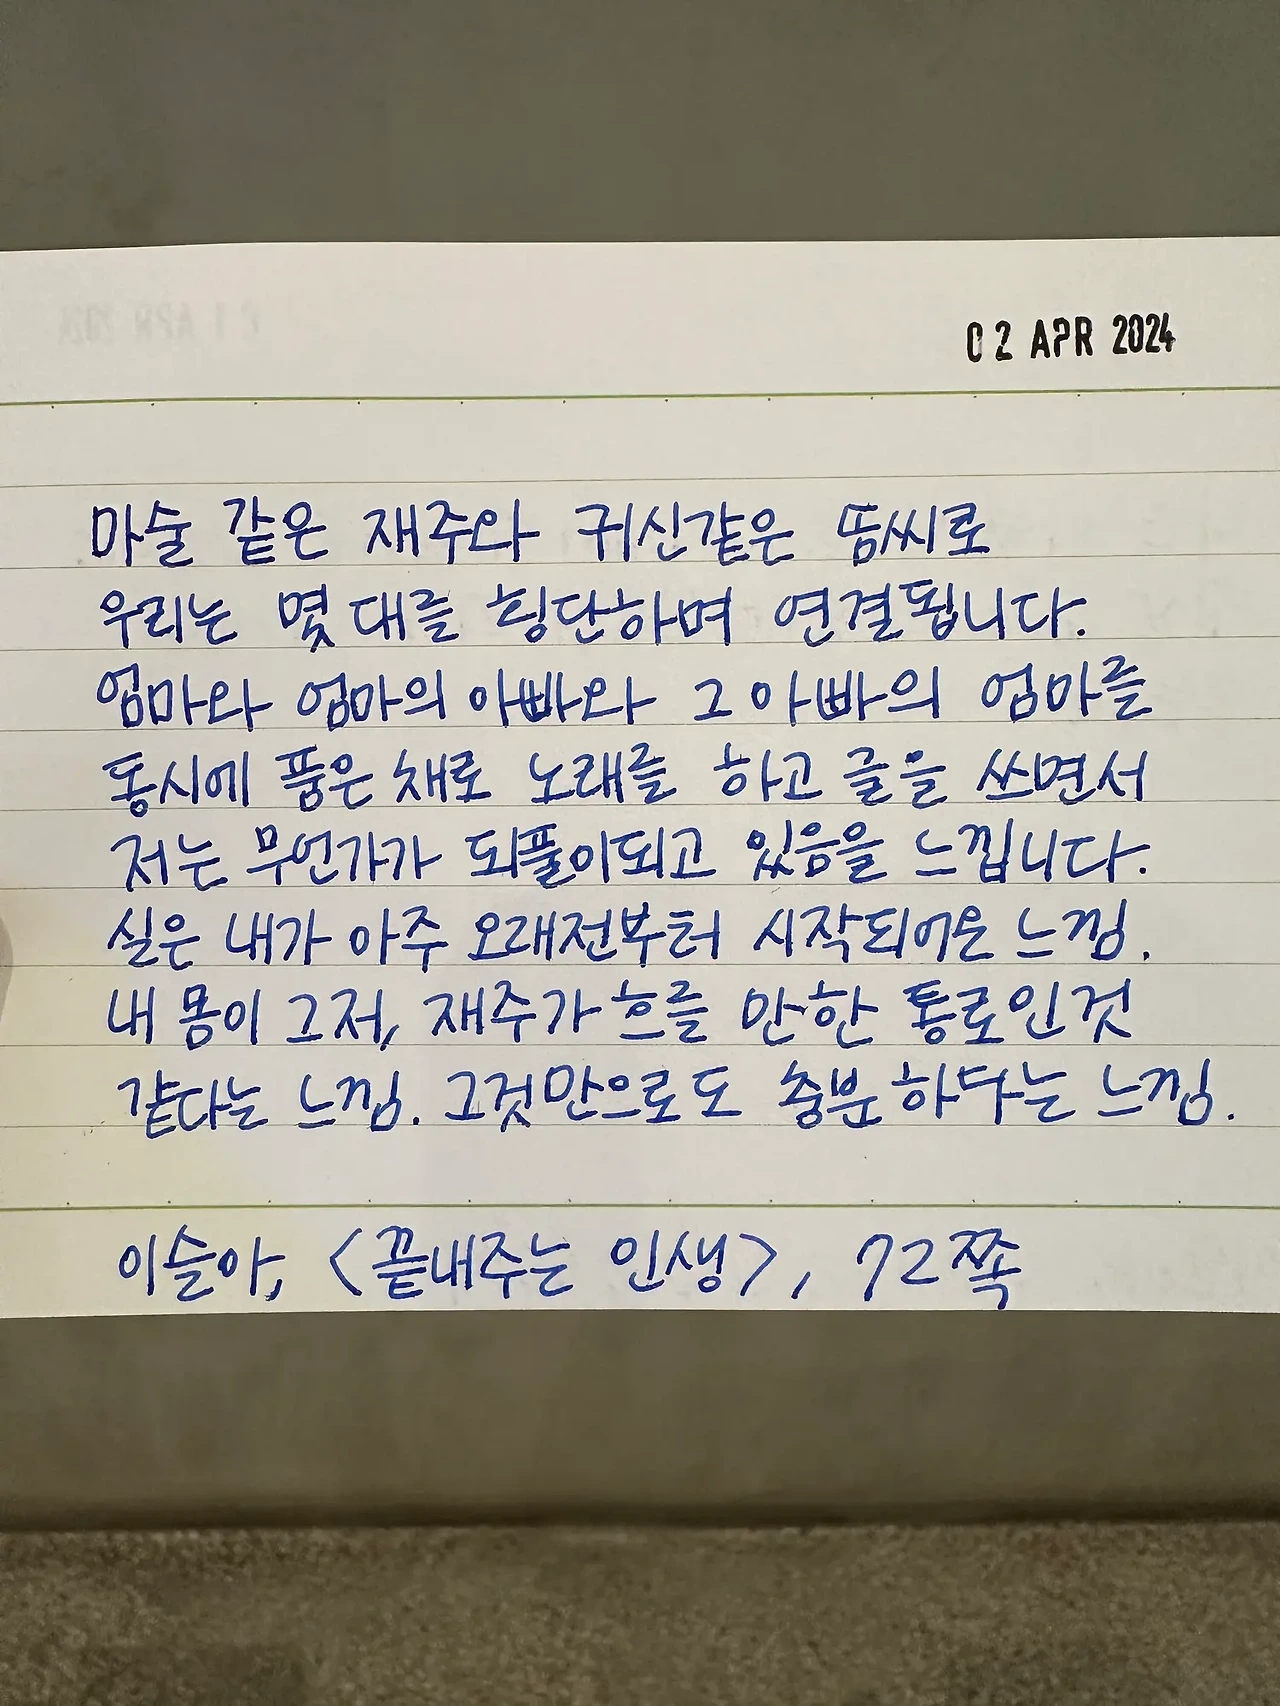 02 APR 2024
마술 같은 재주와 귀신같은 뜸씨로
우리는 몇 대를 횡단하며 연결됩니다.
엄마와 엄마의 아빠와 그 아빠의 엄마를
동시에 품은 채로 노래를 하고 글을 쓰면서
저는 무언가가 되풀이되고 있음을 느낍니다.
실은 내가 아주 오래전부터 시작되어온 느낌.
내 몸이 그저, 재주가 흐를 만한 통로인 것
같다는 느낌. 그것만으로도 충분하다는 느낌.
이슬아, <끝내주는 인생>, 72쪽